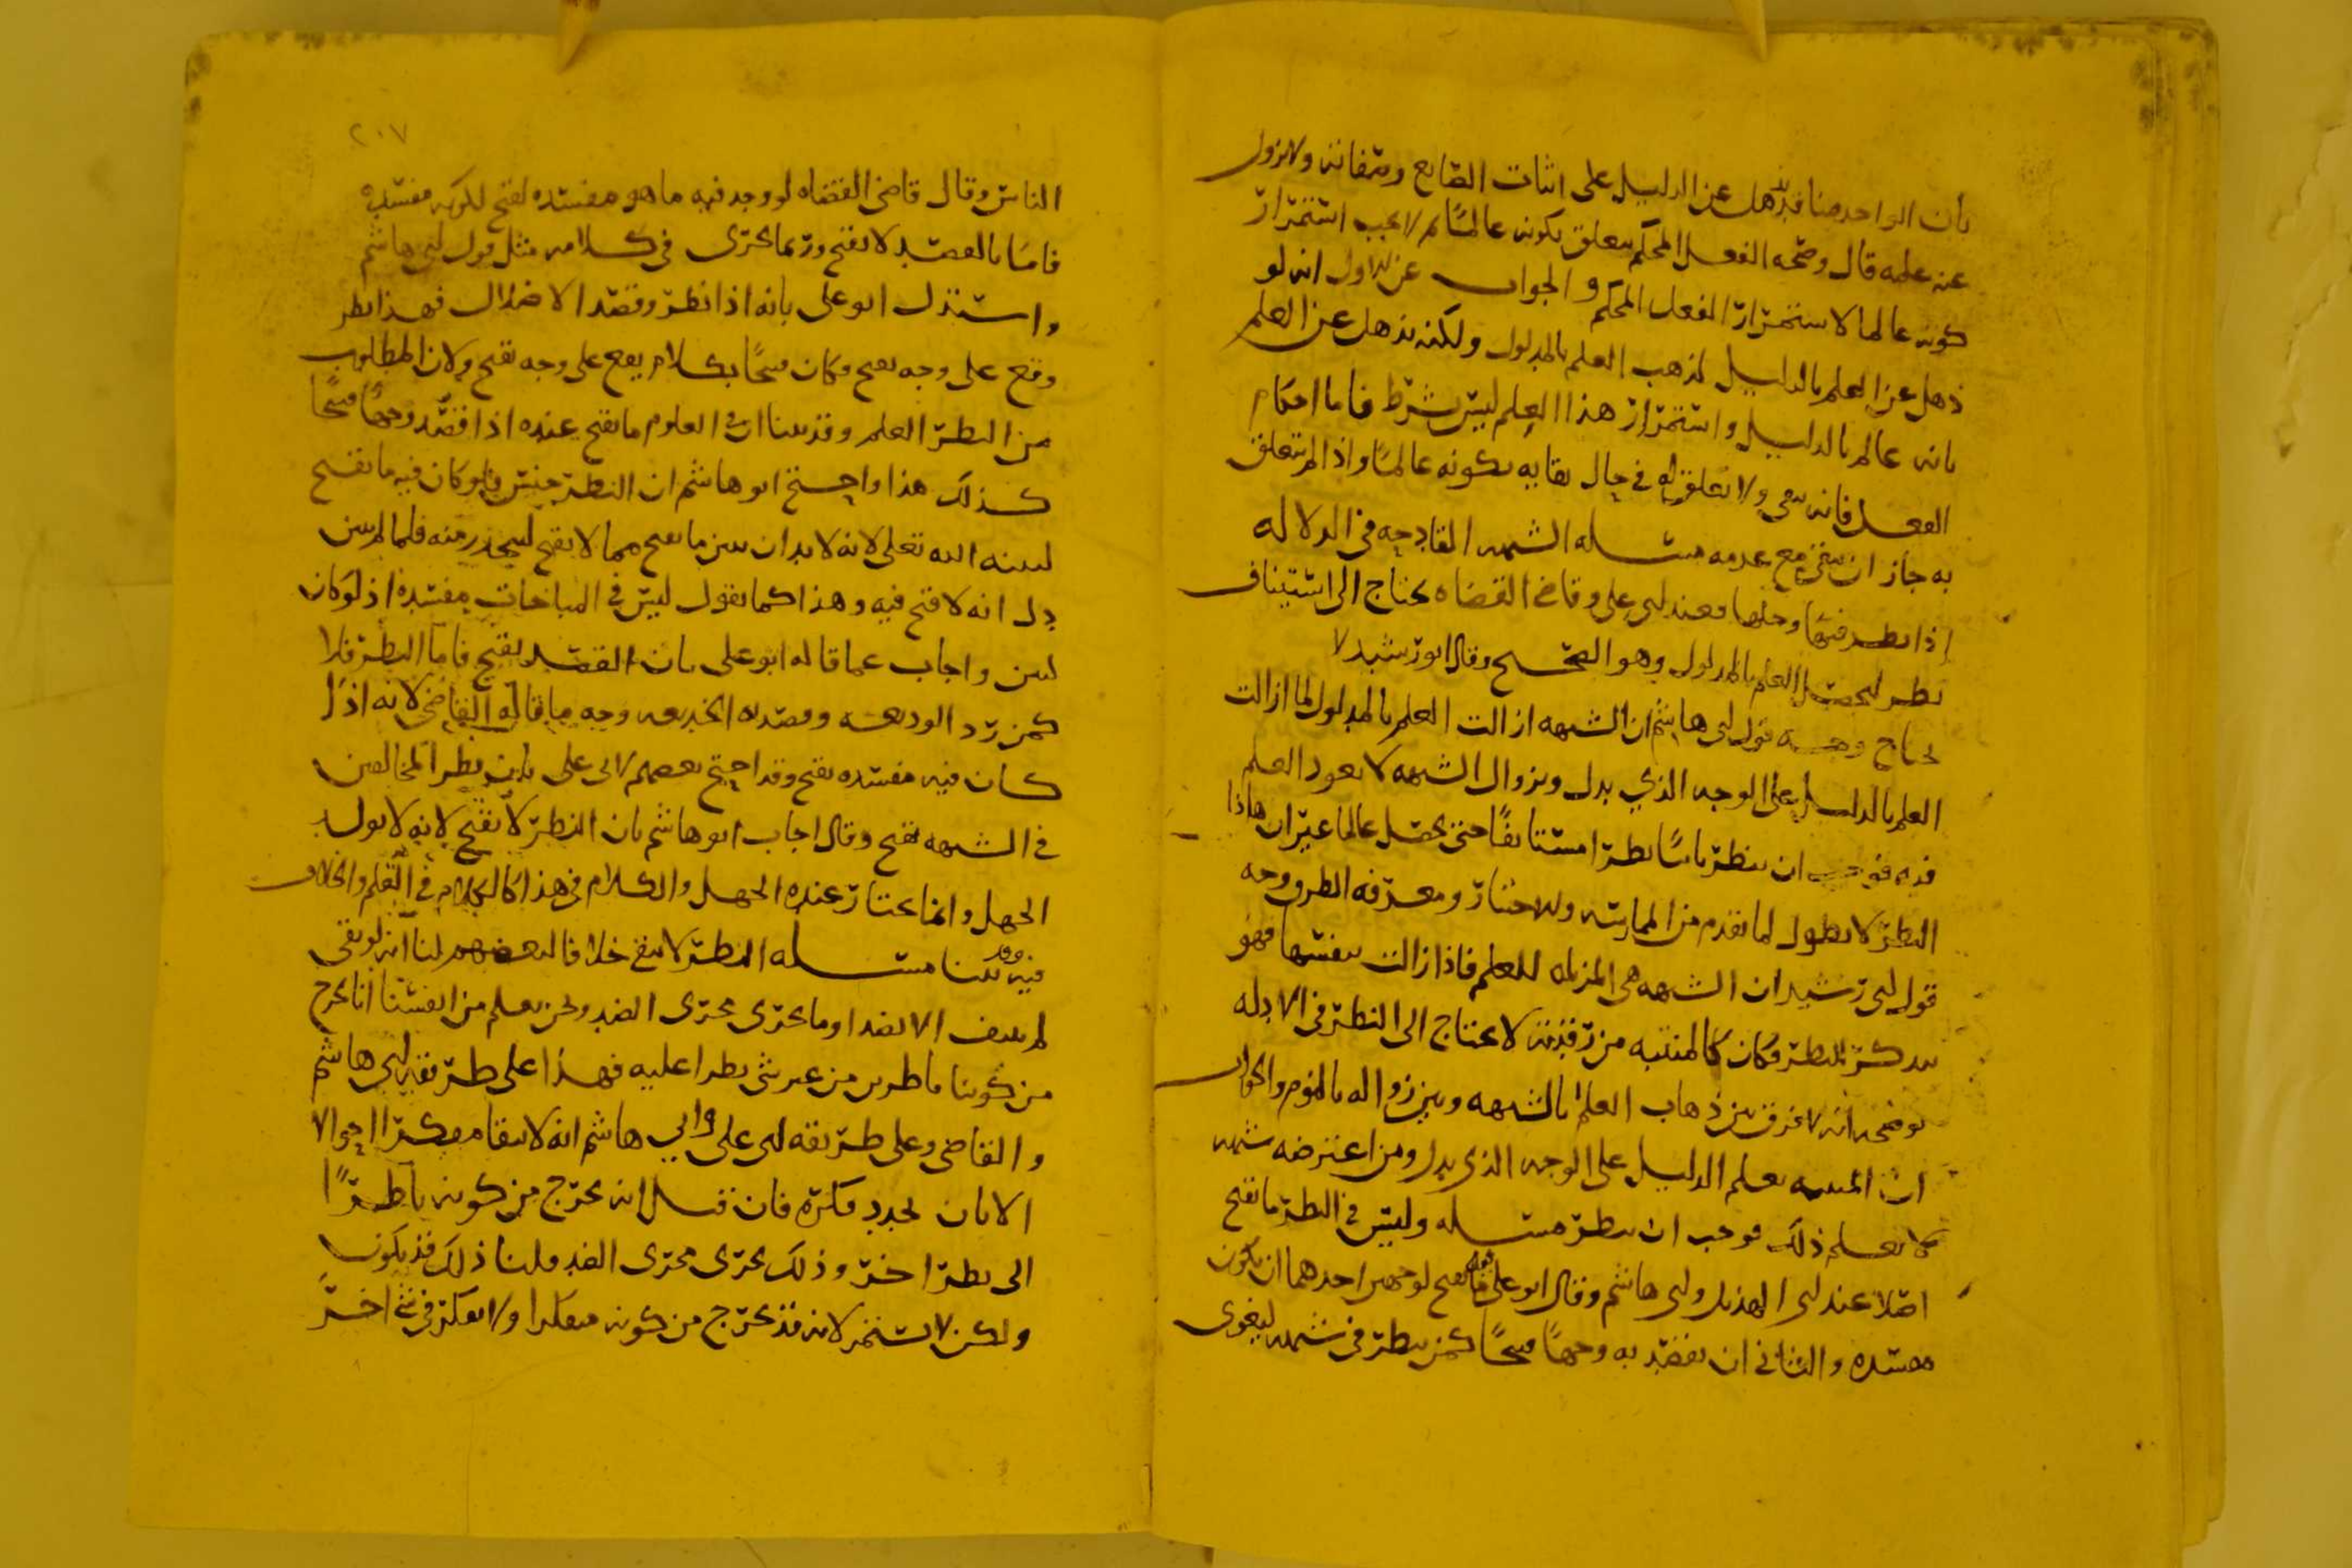 بأن الواحد منا قد يذهل عن الدليل على اثبات الصانع وصفاته ولا يزول
عنه علمه قال وصحه الفعل المحكم يتعلق بكونه عالما ثم لا يجب استمرار
كونه عالما لاستمرار الفعل المحكم والجواب عن الاول انه لو
ذهل عن العلم بالدليل لذهب العلم بالمدلول ولكنه يذهل عن العلم
بانه عالم بالدليل واستمرار هذا العلم ليس بشرط فاما احكام
الفعل فانه يبقى ولا تعلق له في حال بقايه بكونه عالما واذا لم يتعلق
به جاز ان يبقى مع عدمه مسله الشبهه القادحه في الدلاله
اذا نظر فيها وحلها فعند ابي علي وقاضى القضاه يحتاج الى استيناف
نظر ليحصل العلم بالمدلول وهو الصحيح وقال ابو رشيد لا
يحتاج وجه قول ابي هاشم ان الشبهه ازالت العلم بالمدلول لما ازالت
العلم بالدليل على الوجه الذي يدل وبزوال الشبهه لا يعود العلم
فيه فوجب ان ينظر ثانيا نظرا مستانفا حتى يحصل عالما غير ان هاذا
النظر لا يطول لما تقدم من الممارسه والاختبار ومعرفه الطرق ووجه
قول ابي رشيد ان الشبهه هى المزيله للعلم فاذا زالت بنفسها فهو
يتذكر النظر فكان كالمنتبه من رقدته لا يحتاج الى النظر في الادله
يوضحه انه لا فرق بين ذهاب العلم بالشبهه وبين زواله بالنوم والجواب
ان المنتبه يعلم الدليل على الوجه الذي يدل ومن اعترضه شبهه
لا يعلم ذلك فوجب ان ينظر مسله وليس في النظر ما يقبح
اصلا عند ابي الهذيل وابي هاشم وقال ابو علي فيه ما يقبح لوجهين احدهما ان يكون
مفسده والثاني ان يقصد به وجها قبيحا كمن ينظر في شبهه ليغوى
٢٠٧
الناس وقال قاضى القضاه لو وجد فيه ما هو مفسده لقبح لكونه مفسده
فاما بالقصد لا يقبح وربما يجرى في كلامه مثل قول ابي هاشم
واستدل ابو على بانه اذا نظر وقصد الاضلال فهذا نظر
وقع على وجه يقبح فكان قبيحا ككلام يقع على وجه يقبح ولان المطلوب
من النظر العلم وقد بينا ان في العلوم ما يقبح عنده اذا قصد وجها قبيحا
كذلك هذا واحتج ابو هاشم ان النظر جنس فلو كان فيه ما يقبح
لبينه الله تعلى لانه لا بد ان يبين ما يقبح مما لا يقبح ليحذر منه فلما لم يبين
دل انه لا قبح فيه وهذا كما نقول ليس في المباحات مفسده اذ لو كان
لبين واجاب عما قاله ابو على بان القصد يقبح فاما النظر فلا
كمن رد الوديعه وقصده الخديعه وجه ما قاله القاضى لانه اذا
كان فيه مفسده يقبح وقد احتج بعضهم لابي على بان نظر المخالفين
في الشبهه يقبح وقال اجاب ابو هاشم بان النظر لا يقبح لانه لا يولد
الجهل وانما يختار عنده الجهل والكلام في هذا كالكلام في العلم والخلاف
فيه وقد بينا مسله النظر لا يبقى خلافا لبعضهم لنا انه لو بقى
لم ينتف الا بضد او ما يجرى مجرى الضد ونحن نعلم من انفسنا انا نخرج
من كوننا ناظرين من غير شى يطرا عليه فهذا على طريقه ابي هاشم
والقاضى وعلى طريقه ابي على وابي هاشم انه لا يبقا مفكرا احوالا
الا بان يجدد فكره فان قيل انه يخرج من كونه ناظرا
الى نظر اخر وذلك يجرى مجرى الضد قلنا ذلك قد يكون
ولكن لا يستمر لانه قد يخرج من كونه مفكرا ولا يفكر في شى اخر